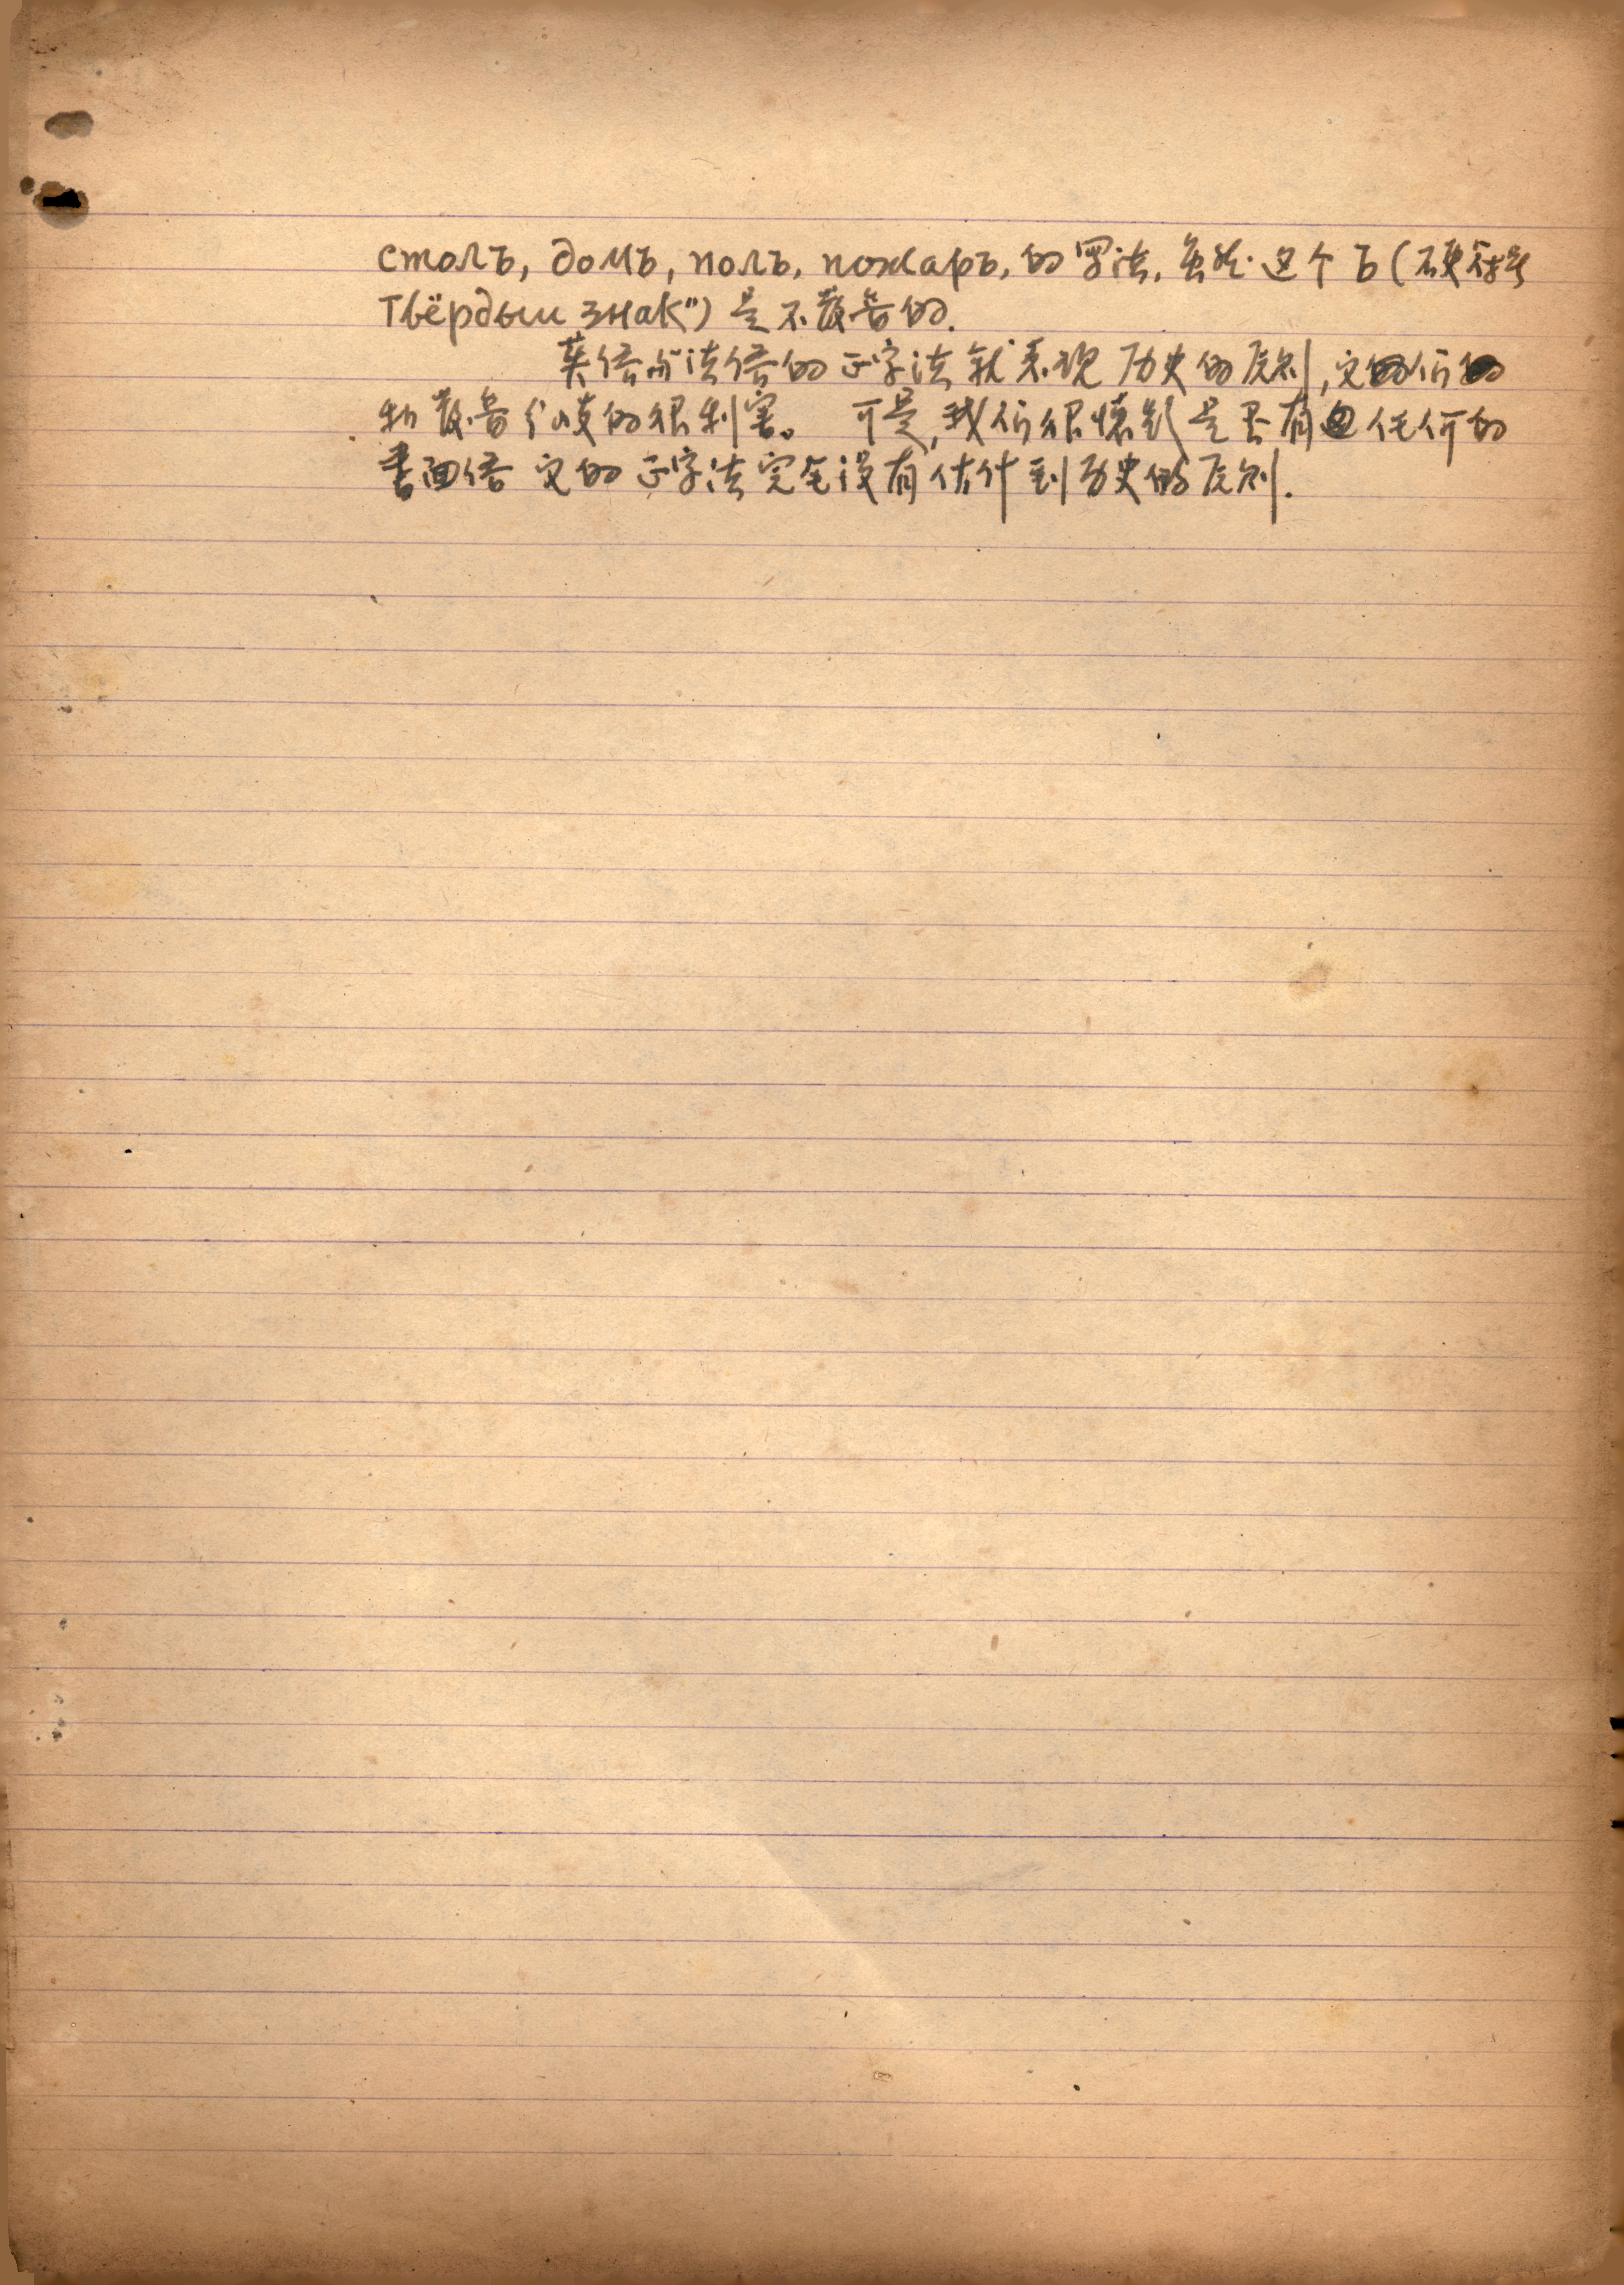 столъ, домъ, полъ, пожаръ, 的写法, 虽然 这个 ъ (硬符号
Твёрдыи знак") 是不发音的.
英语与法语的正字法就表现历史的原则, 它们
和发音分歧的很利害。 可是, 我们很怀疑是否有 任何的
书面语 它的正字法完全没有估计到历史的原则.